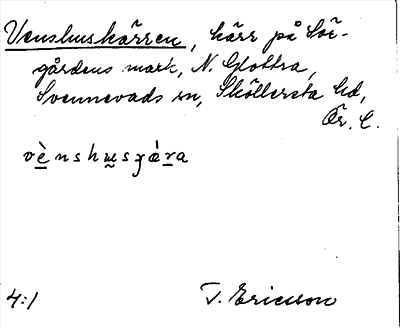 Venshuskärren, kärr på Sör-
gårdens mark, N. Glottra,
Svennevads sn, Sköllersta hd,
Ör. l.
vènshusɣæ̀ra
4:1 T. Ericsson